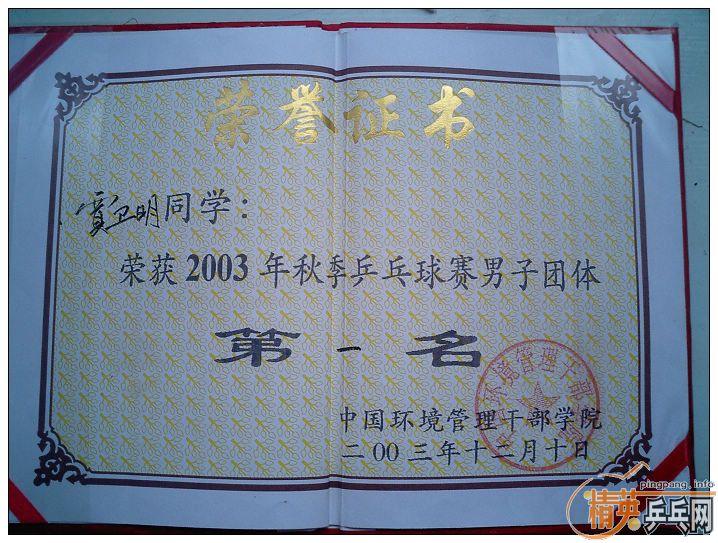 荣誉证书
贾卫明同学：
荣获 2003 年秋季乒乓球赛男子团体
第一名
中国环境管理干部学院
二00三年十二月十日
pingpang.info
精英乒乓网